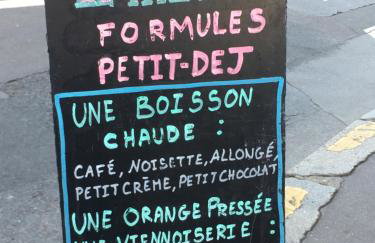 FORMULES
PETIT-DEJ
UNE BOISSON
CHAUDE :
CAFÉ, NOISETTE, ALLONGÉ,
PETIT CRÈME, PETIT CHOCOLAT
UNE ORANGE PRESSÉE
UNE VIENNOISERIE :